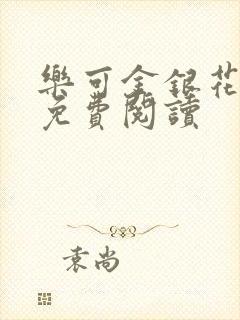 樂可金銀花
免費閱讀
袁尚